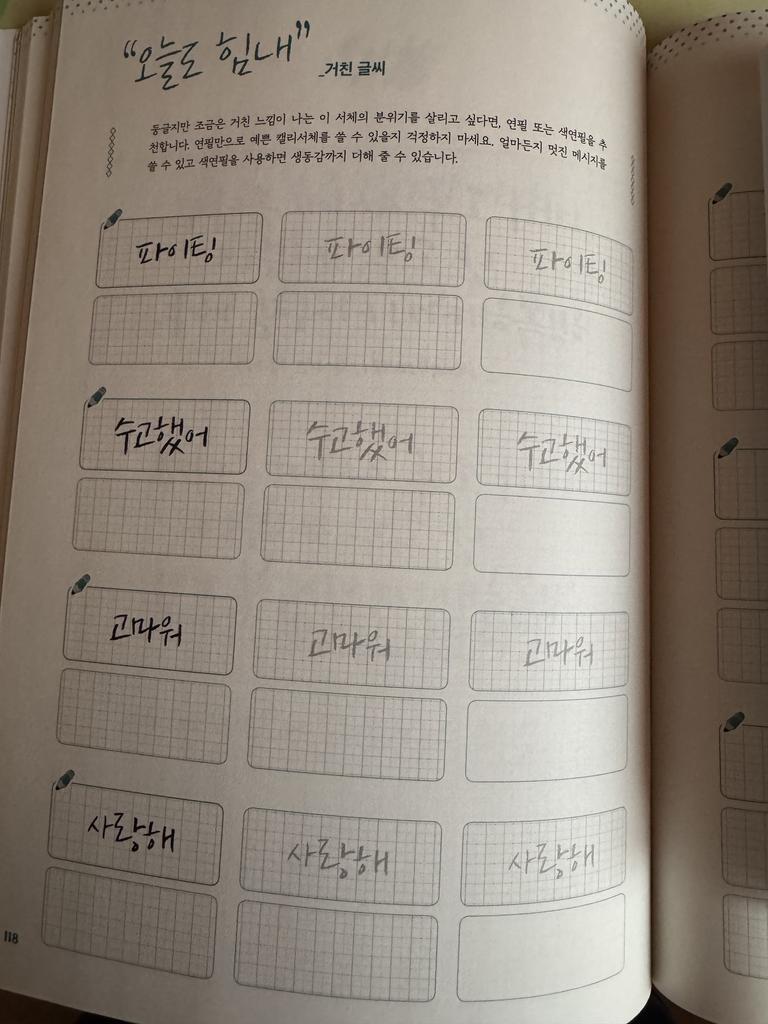 “오늘도 힘내”
_거친 글씨
둥글지만 조금은 거친 느낌이 나는 이 서체의 분위기를 살리고 싶다면, 연필 또는 색연필을 추
천합니다. 연필만으로 예쁜 캘리서체를 쓸 수 있을지 걱정하지 마세요. 얼마든지 멋진 메시지를
쓸 수 있고 색연필을 사용하면 생동감까지 더해 줄 수 있습니다.
파이팅 파이팅 파이팅
수고했어 수고했어 수고했어
고마워 고마워 고마워
사랑해 사랑해 사랑해
118